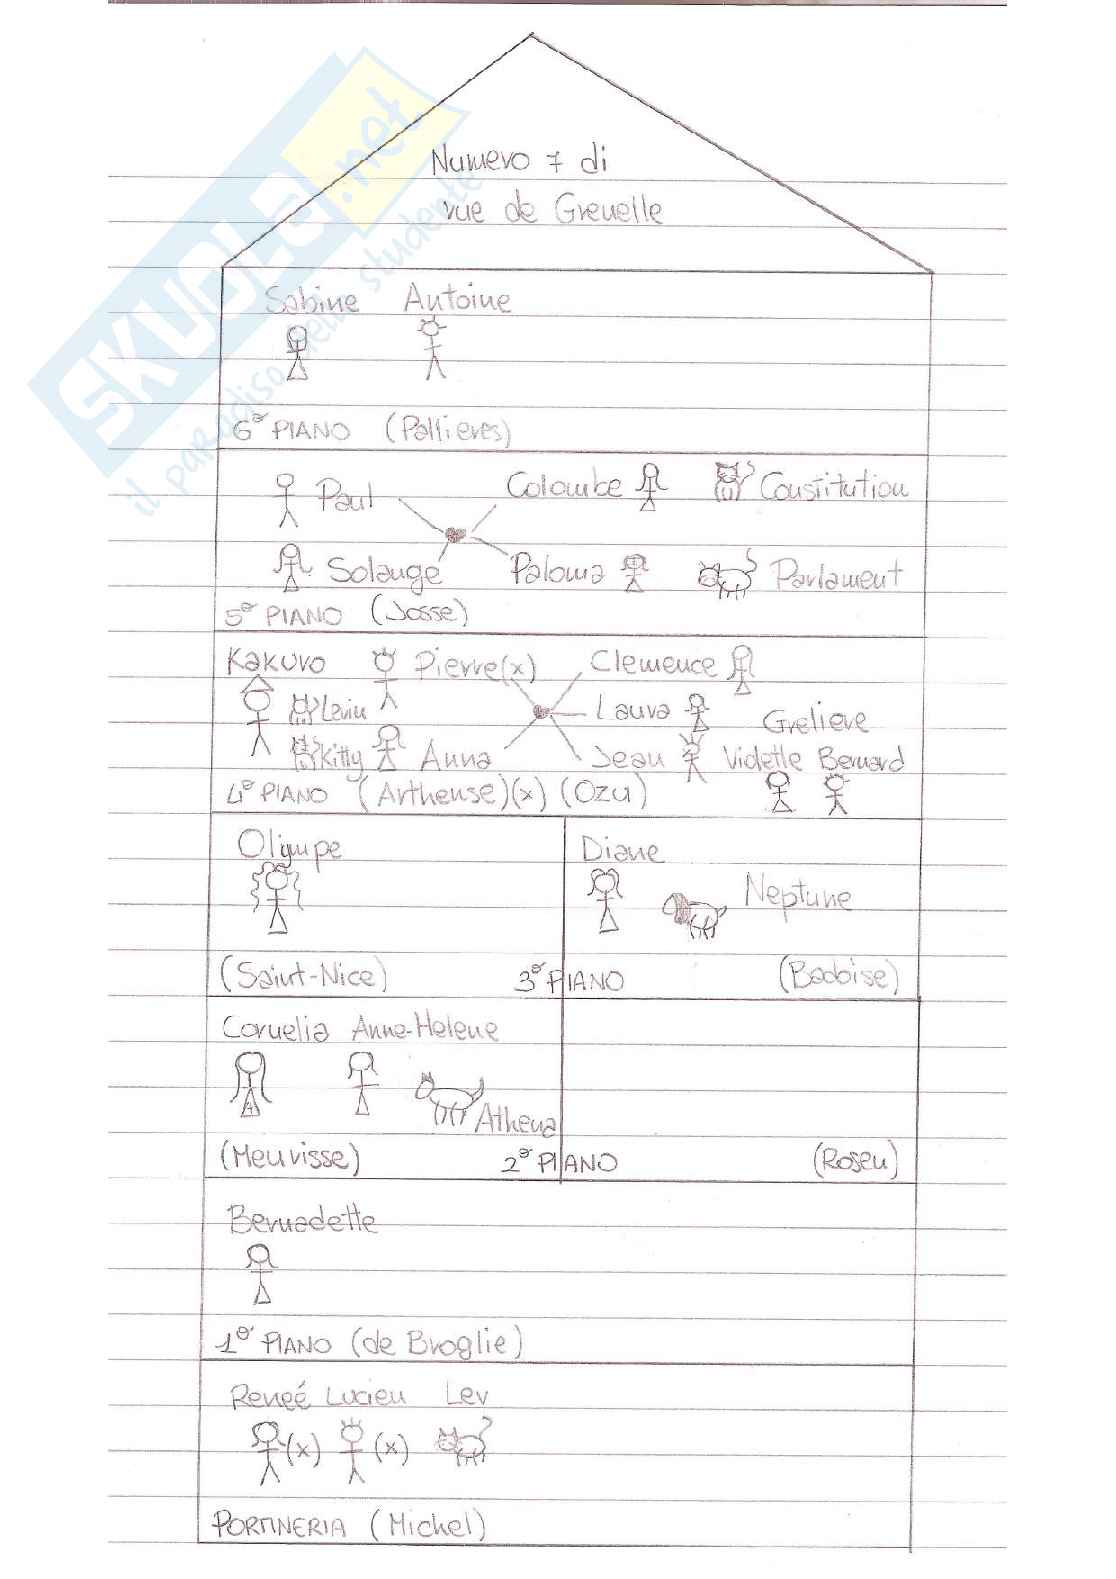 SKUOLA.net
il paradiso dello studente
Numero 7 di
rue de Grenelle
Sabine Antoine
6° PIANO (Pallieres)
Paul Colombe Constitution
Solange Paloma Parlament
5° PIANO (Josse)
Kakuro Pierre(x) Clemence
Levin Laura Greliere
Kitty Anna Jean Violette Bernard
4° PIANO (Arthense)(x) (Ozu)
Olimpe Diane
Neptune
(Saint-Nice) 3° PIANO (Badoise)
Cornelia Anne-Helene
Athena
(Meurisse) 2° PIANO (Rosen)
Bernadette
1° PIANO (de Broglie)
Reneé Lucien Lev
(x) (x)
PORTINERIA (Michel)